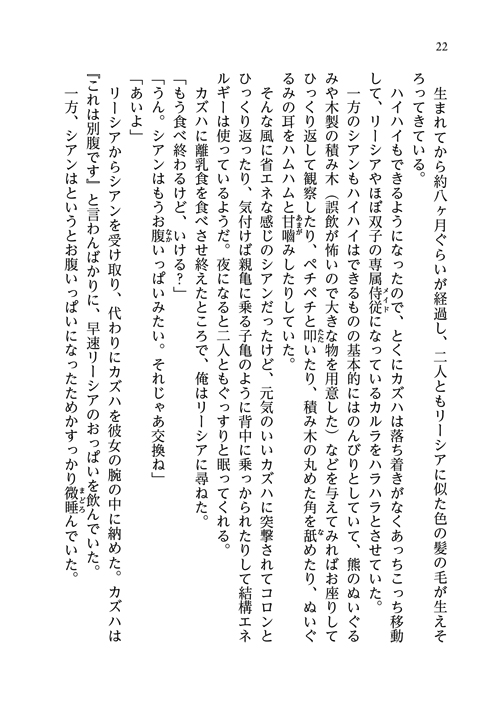 22
生まれてから約八ヶ月ぐらいが経過し、二人ともリーシアに似た色の髪の毛が生えそ
ろってきている。
ハイハイもできるようになったので、とくにカズハは落ち着きがなくあっちこっち移動
して、リーシアやほぼ双子の専属侍従になっているカルラをハラハラとさせていた。
メイド
一方のシアンもハイハイはできるものの基本的にはのんびりとしていて、熊のぬいぐる
みや木製の積み木（誤飲が怖いので大きな物を用意した）などを与えてみればお座りして
ひっくり返して観察したり、ペチペチと叩いたり、積み木の丸めた角を舐めたり、ぬいぐ
たた
な
るみの耳をハムハムと甘嚙みしたりしていた。
あまが
そんな風に省エネな感じのシアンだったけど、元気のいいカズハに突撃されてコロンと
ひっくり返ったり、気付けば親亀に乗る子亀のように背中に乗っかられたりして結構エネ
ルギーは使っているようだ。夜になると二人ともぐっすりと眠ってくれる。
カズハに離乳食を食べさせ終えたところで、俺はリーシアに尋ねた。
「もう食べ終わるけど、いける？」
「うん。シアンはもうお腹いっぱいみたい。それじゃあ交換ね」
なか
「あいよ」
リーシアからシアンを受け取り、代わりにカズハを彼女の腕の中に納めた。カズハは
『これは別腹です』と言わんばかりに、早速リーシアのおっぱいを飲んでいた。
一方、シアンはというとお腹いっぱいになったためかすっかり微睡んでいた。
まどろ